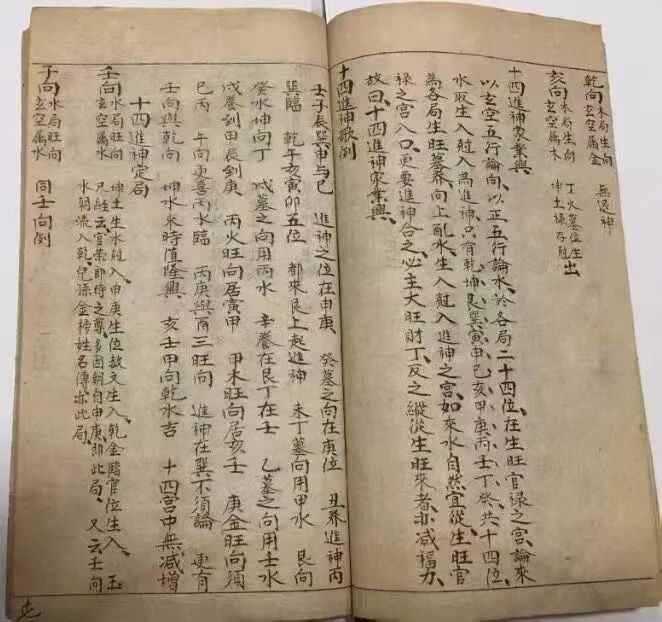 乾向木局生向 無退神
玄空属金
亥向木局生向 丁火墓位生出
玄空属木 坤土禄存尅出
十四進神家業興
以玄空五行論向、以正五行論水、於各局二十四位、在生旺官禄之宫、論來
水取生入尅入為進神、只有乾坤艮巽寅申巳亥甲庚丙壬丁癸、共十四位、
為各局生旺墓养向上亂水、生入尅入進神之宫、如來水自然宜從生旺官
禄之宫入口、更要進神合之、必主大旺財丁、反之縱從生旺來者、亦减福力、
故曰、十四進神家業興、
十四進神歌例
壬子辰巽申与巳 進神之位在申庚 癸墓之向在庚位 丑养進神丙
巽臨 乾午亥寅卯五位 都來艮上起進神 未丁墓向用甲水 艮向
癸水坤向丁 戌墓之向用丙水 辛养在艮丁在壬 乙墓之向用壬水
戌养到甲辰到庚 丙火旺向居寅甲 甲木旺向居亥壬 庚金旺向須
巳丙 午向更喜丙水臨 丙庚與酉三旺向 進神在巽不須論 更有
壬向與乾向 坤水來時值隆興 亥壬甲向乾水吉 十四宫中無减增
十四進神定局
壬向水局旺向 坤土生水尅入、申庚生位故文生入、乾金臨官位生入、玉
玄空属水 尺經云、官榮即侍之尊、多因朝自申庚、即此局、又云壬向
水朝流入乾、兒孫金榜姓名傳亦此局、
子向水局旺向 同壬向例
玄空属水